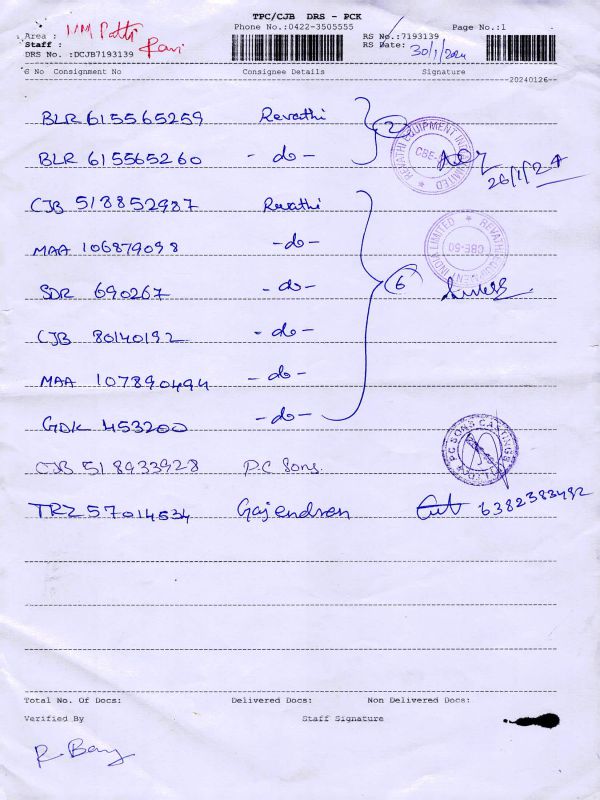 TPC/CJB DRS - PCK
Phone No.:0422-3505555
Page No.:1
Area : MM Patti
RS No.:7193139
Staff : Ravi
RS Date: 30/1/2024
DRS No. :DCJB7193139
S No Consignment No Consignee Details Signature
20240126
BLR 615565259 Revathi
BLR 615565260 - do - 2
26/1/24
CJB 518852987 Revathi
MAA 106879098 - do -
SDR 690267 - do - 6
CJB 80140192 - do -
MAA 107890494 - do -
GDK 453200 - do -
CJB 518933928 P.C Sons.
TRZ 57014534 Gajendren 6382383492
REVATHI EQUIPMENT INDIA LIMITED
CBE-50
REVATHI EQUIPMENT INDIA LIMITED
CBE-50
PC SONS CASTINGS
Total No. Of Docs: Delivered Docs: Non Delivered Docs:
Verified By Staff Signature